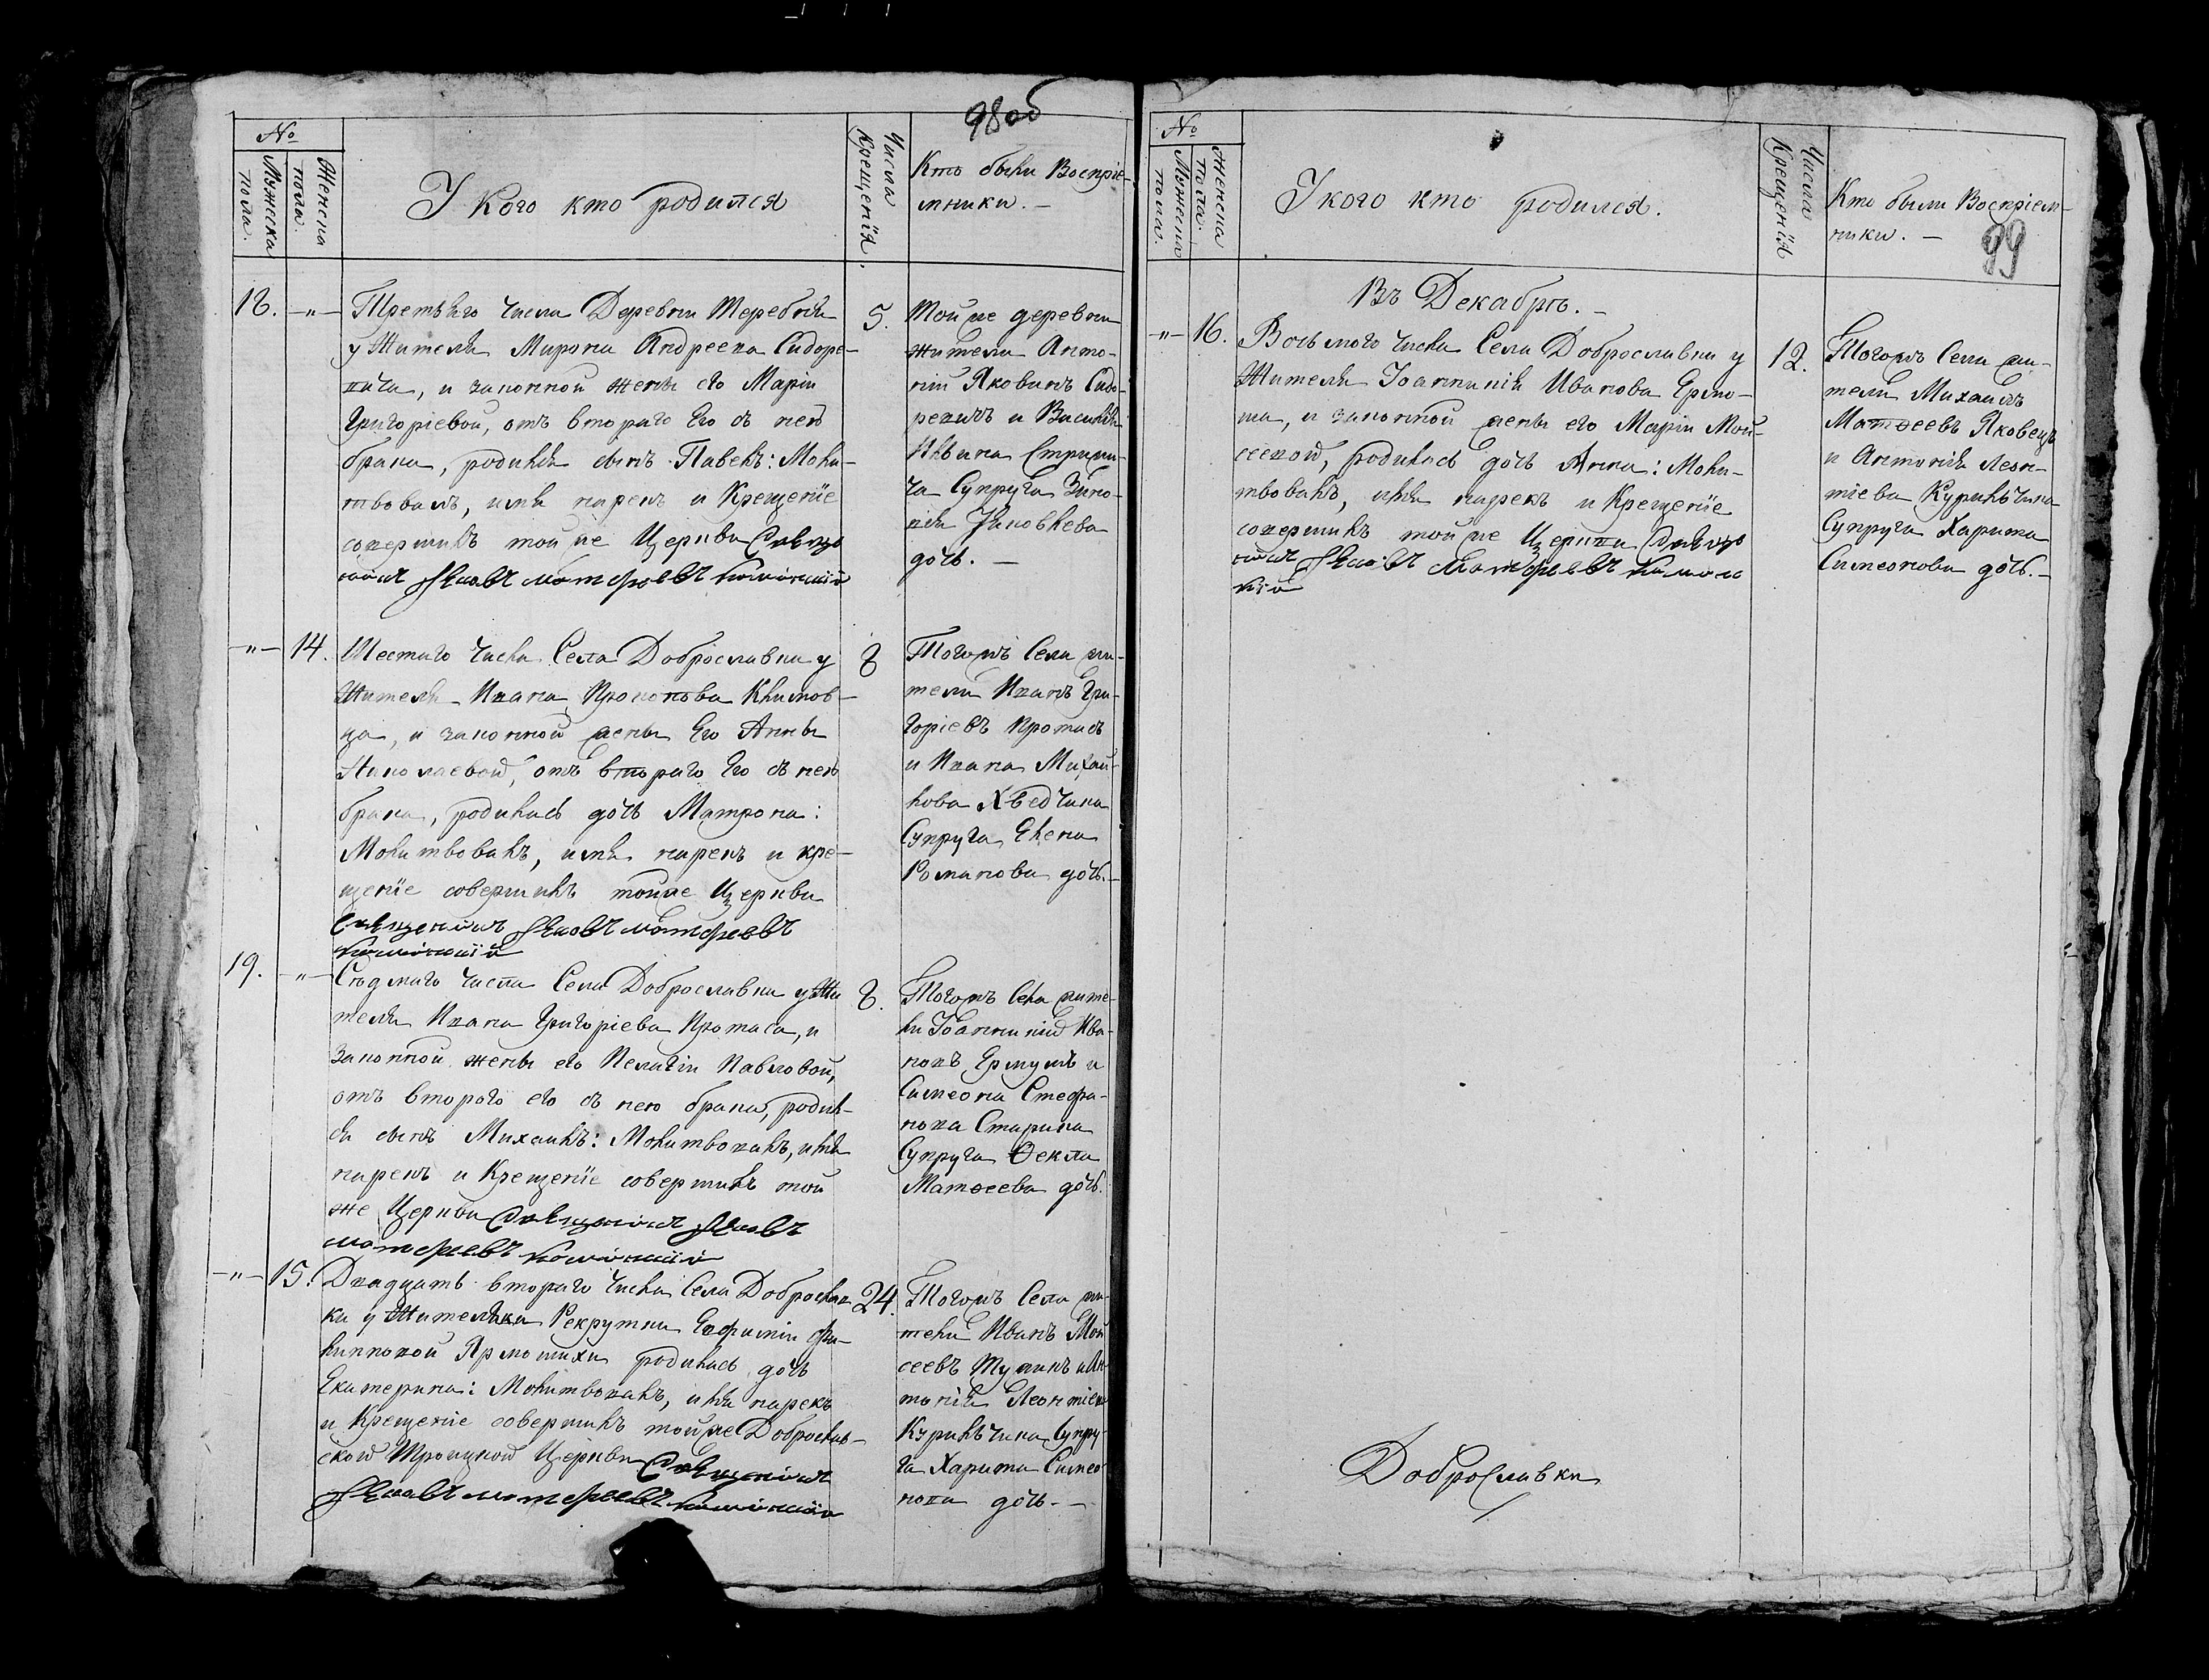 98об
№
Мужеска пола.
Женска пола.
У Кого кто родился
Числа Крещенїя.
Кто были Воспріе-
мники. —
18. —"— Третьяго числа Деревни Теребня
у Жителя Мирона Андреева Сидоре-
вича, и законной жены его Маріи
Григоріевой, отъ втораго Его съ нею
брака, родился сынъ Павелъ: Моли-
твовалъ, имя нарекъ и Крещенїе
совершилъ той же Церкви Священ-
никъ Яковъ Матфеевъ
5. Той же деревни
жители Анто-
ній Яковлевъ Сидо-
ревичъ и Василія
Супруга Зино-
вія Яковлева
дочь. —
—"— 14. Шестаго числа Села Доброславки у
Жителя Ивана Прокопова Климов-
ца, и законной жены Его Анны
Николаевой, отъ втораго Его съ нею
брака, родилась дочь Матрона:
Молитвовалъ, имя нарекъ и кре-
щенїе совершилъ тойже Церкви
Священникъ Яковъ Матфеевъ
8 Тогожъ Села жи-
тели Иванъ Гри-
горіевъ Протасъ
и Ивана Михай-
лова Хведчика
Супруга Елена
Романова дочь. —
19. —"— Седмаго числа Села Доброславки у Жи
теля Ивана Григоріева Протаса, и
законной жены его Пелагіи Павловой,
отъ второго его съ нею брака, родил-
ся сынъ Михаилъ: Молитвовалъ, имя
нарекъ и Крещенїе совершилъ той
же Церкви Священникъ Яковъ
Матфеевъ
8. Тогожъ Села жите-
ли Іоанникій Ива-
новъ Ермушъ и
Симеона Стефа-
нова Старика
Супруга Ѳекла
Матѳеева дочь.
—"— 15. Двадцать втораго числа Села Доброслав
ки у Жителки Рекрутки Евфиміи Фи-
липповой Ярмошихи родилась дочь
Екатерина: Молитвовалъ, имя нарекъ
и Крещенїе совершилъ тойже Доброслав-
ской Троицкой Церкви Священникъ
Яковъ Матфеевъ
24. Тогожъ Села жи-
тели Иванъ Мой
сеевъ и Ан-
тонія Леонтіева
Курильчика Супру-
га Харита Симео
нова дочь. —
№
Мужеска пола.
Женска пола.
У кого кто родился.
Числа Крещенїя
Кто были Воспріем-
ники. —
99
Въ Декабрѣ. —
—"— 16. Восьмого числа Села Доброславки у
Жителя Іоанникія Иванова Ермо-
ша, и законной жены его Маріи Мой-
сеевой, родилась дочь Анна: Моли-
твовалъ, имя нарекъ и Крещенїе
совершилъ той же Церкви Священ-
никъ Яковъ Матфеевъ
12. Тогожъ Села жи-
тели Михаилъ
Матѳеевъ Яковецъ
и Антонія Леон-
тіева Курильчика
Супруга Харита
Симеонова дочь. —
Доброславки